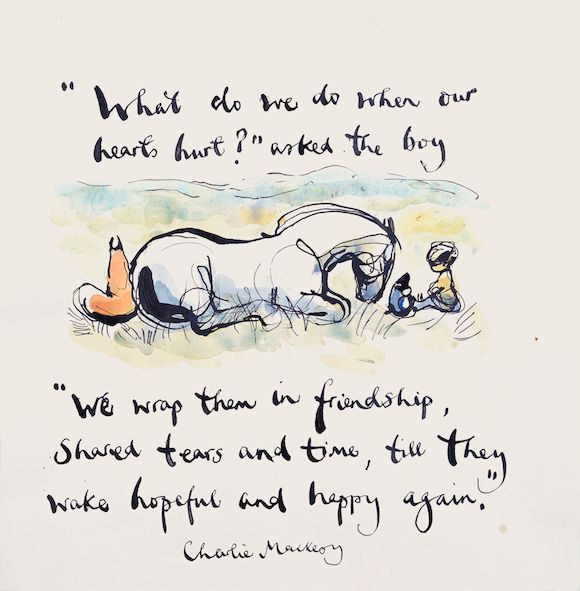 "What do we do when our
hearts hurt?" asked the boy
"We wrap them in friendship,
shared tears and time, till they
wake hopeful and happy again."
Charlie Mackesy